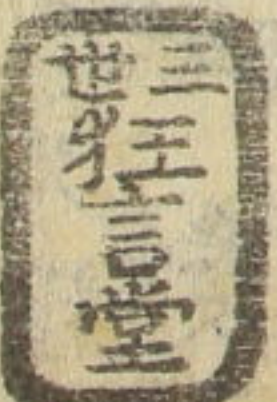 三世
狂言堂